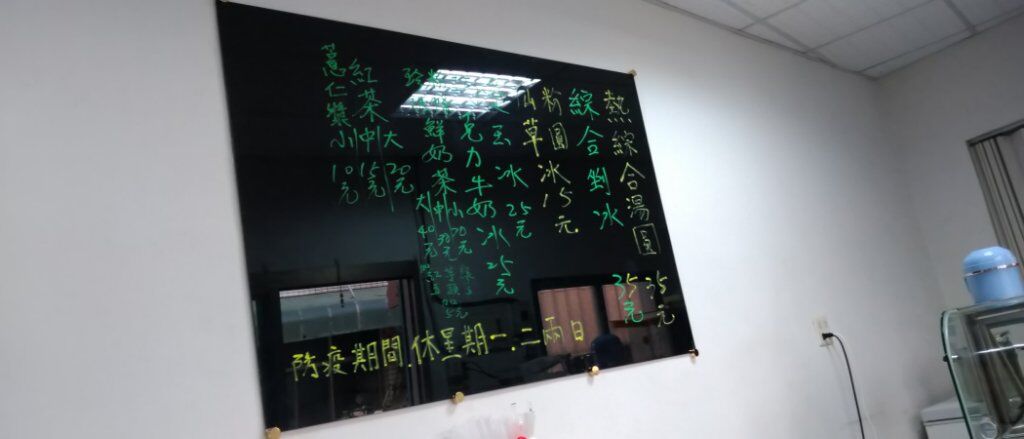 熱綜合湯圓 35元
綜合剉冰 35元
粉圓冰 15元
仙草
玉冰 25元
克力牛奶冰 25元
鮮奶茶
大中小
40元 30元 20元
紅茶
大 20元
中 15元
小 10元
薏仁漿
防疫期間,休星期一.二兩日